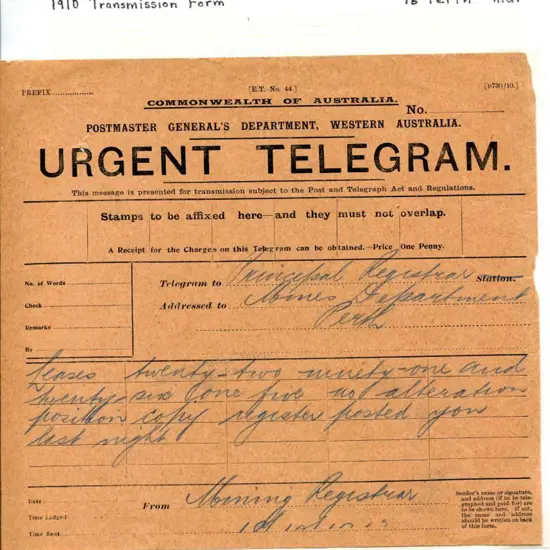 1910 Transmission Form
PREFIX
[E.T. No. 44]
(D730/10.)
COMMONWEALTH OF AUSTRALIA.
No.
POSTMASTER GENERAL'S DEPARTMENT, WESTERN AUSTRALIA.
URGENT TELEGRAM.
This message is presented for transmission subject to the Post and Telegraph Act and Regulations.
Stamps to be affixed here—and they must not overlap.
A Receipt for the Charges on this Telegram can be obtained.—Price One Penny.
No. of Words
Check
Remarks
By
Telegram to Principal Registrar Station.
Addressed to Mines Department
Perth
Leases twenty-two ninety-one and
twenty-six one five no alteration
position copy register posted you
last night
Date
Time Lodged
Time Sent
From Mining Registrar
Sender's name or signature,
and address (if to be tele-
graphed and paid for) are
to be shown here. If not,
the name and address
should be written on back
of this form.